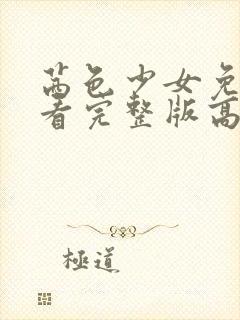 茜色少女免
看完整版高
極道